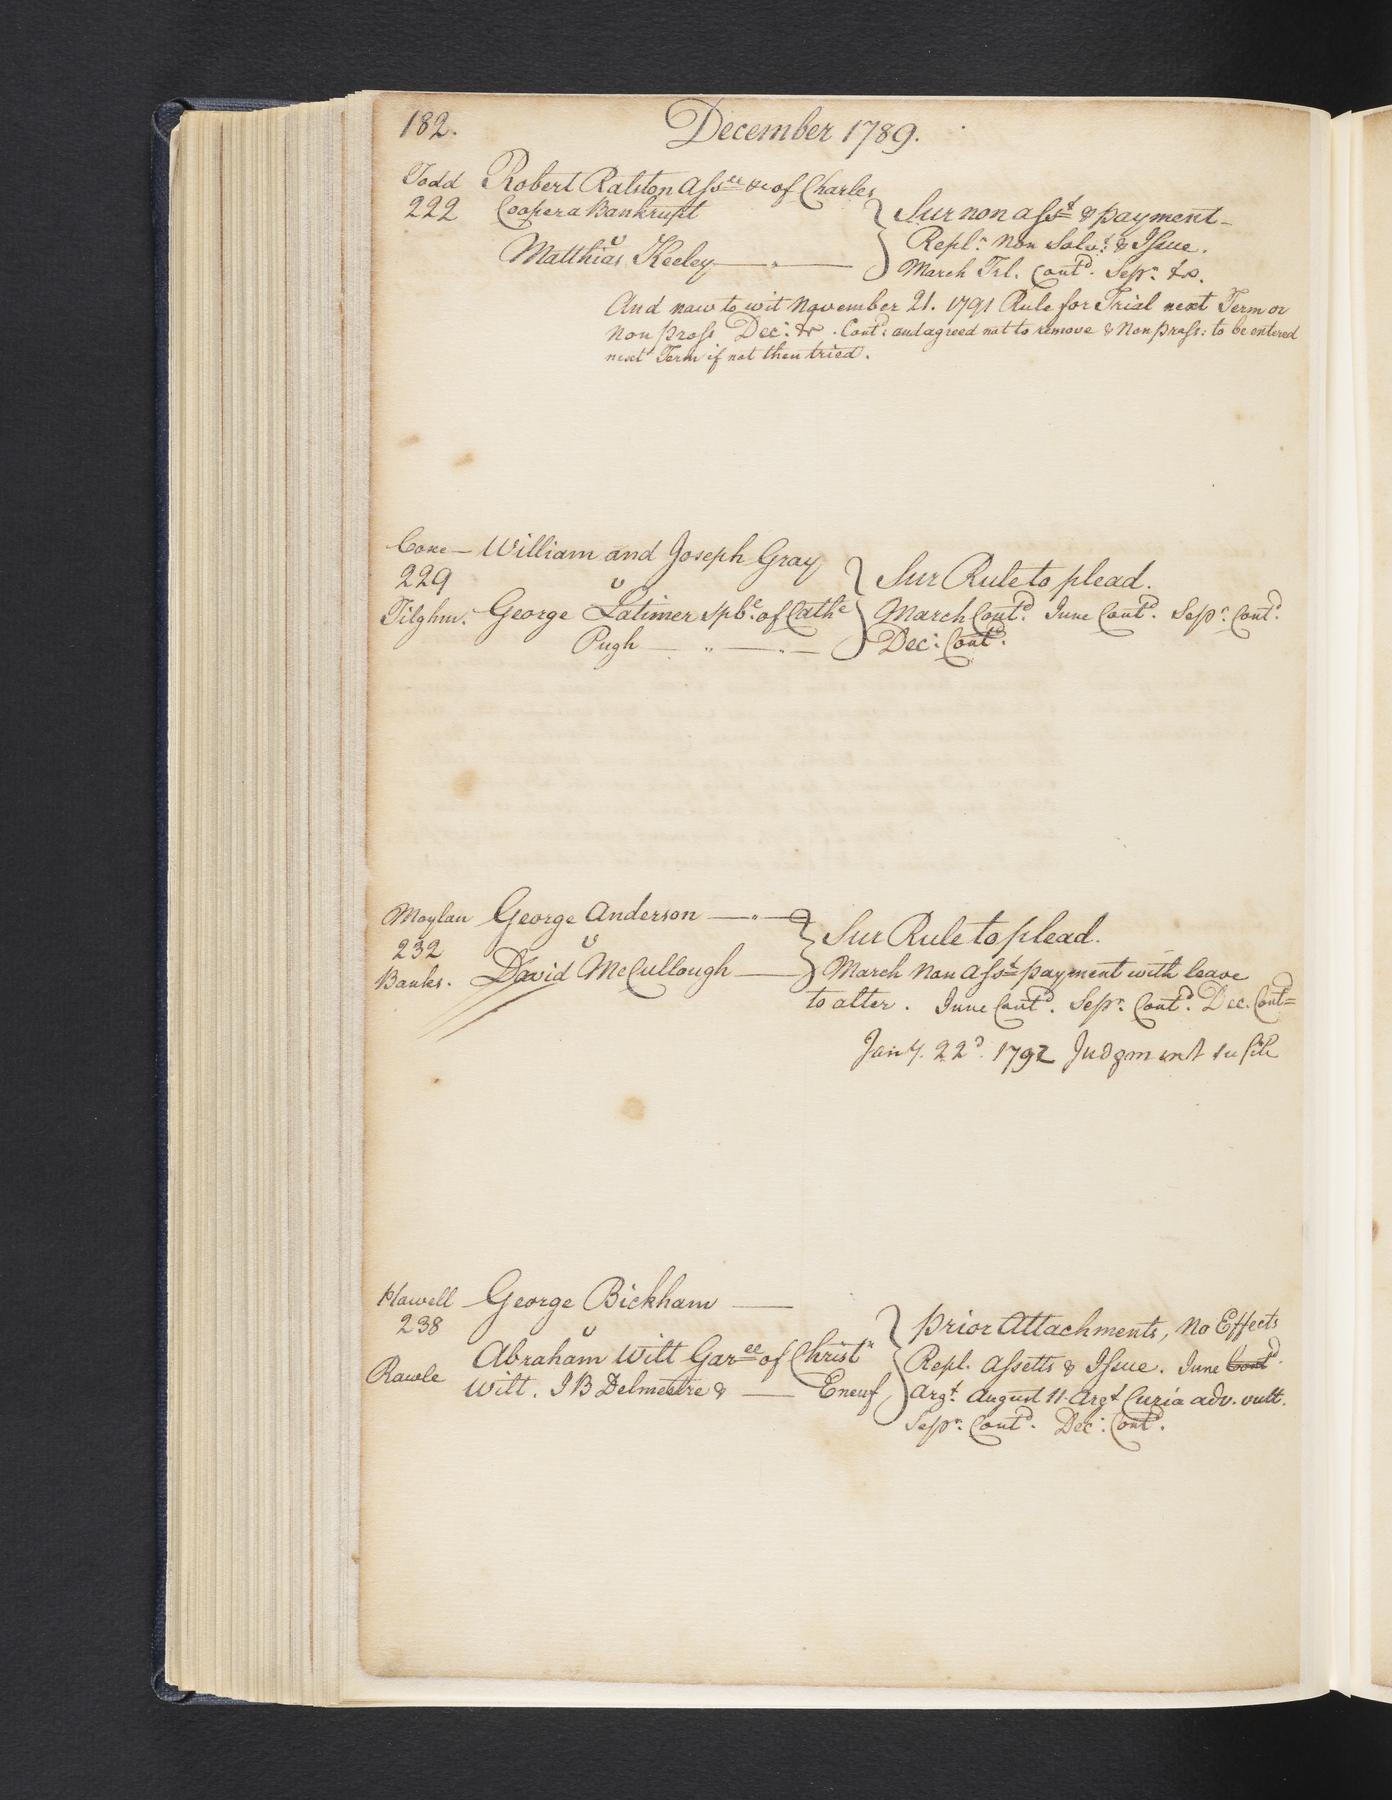 182. December 1789.
Todd Robert Ralston Assee &c of Charles
222 Cooper a Bankrupt
v
Matthias Keeley
Sur non asst & payment
Repln non Solvt & Issue.
March Trl. Contd. Sepr. &c.
And now to wit November 21. 1791 Rule for Trial next Term or
non pross Dec: &c. Contd: and agreed not to remove & Non pross: to be entered
next Term if not then tried.
Coxe William and Joseph Gray
229 v
Tilghm: George Latimer Spbc. of Cathe
Pugh
Sur Rule to plead.
March Contd. June Contd. Sepr. Contd.
Dec: Contd.
Moylan George Anderson
232 v
Banks. David McCullough
Sur Rule to plead.
March non asst payment with leave
to alter. June Contd. Sepr. Contd. Dec. Cont
Jany. 22d. 1792 Judgment
Howell George Bickham
238 v
Rawle Abraham Witt Garee of Christr
Witt. I B Delmestre & Eneuf
prior Attachments, no Effects
Repl. assetts & Issue. June Contd.
argt. august 11 Argt Curia adv. vult.
Sepr. Contd. Dec: Contd.